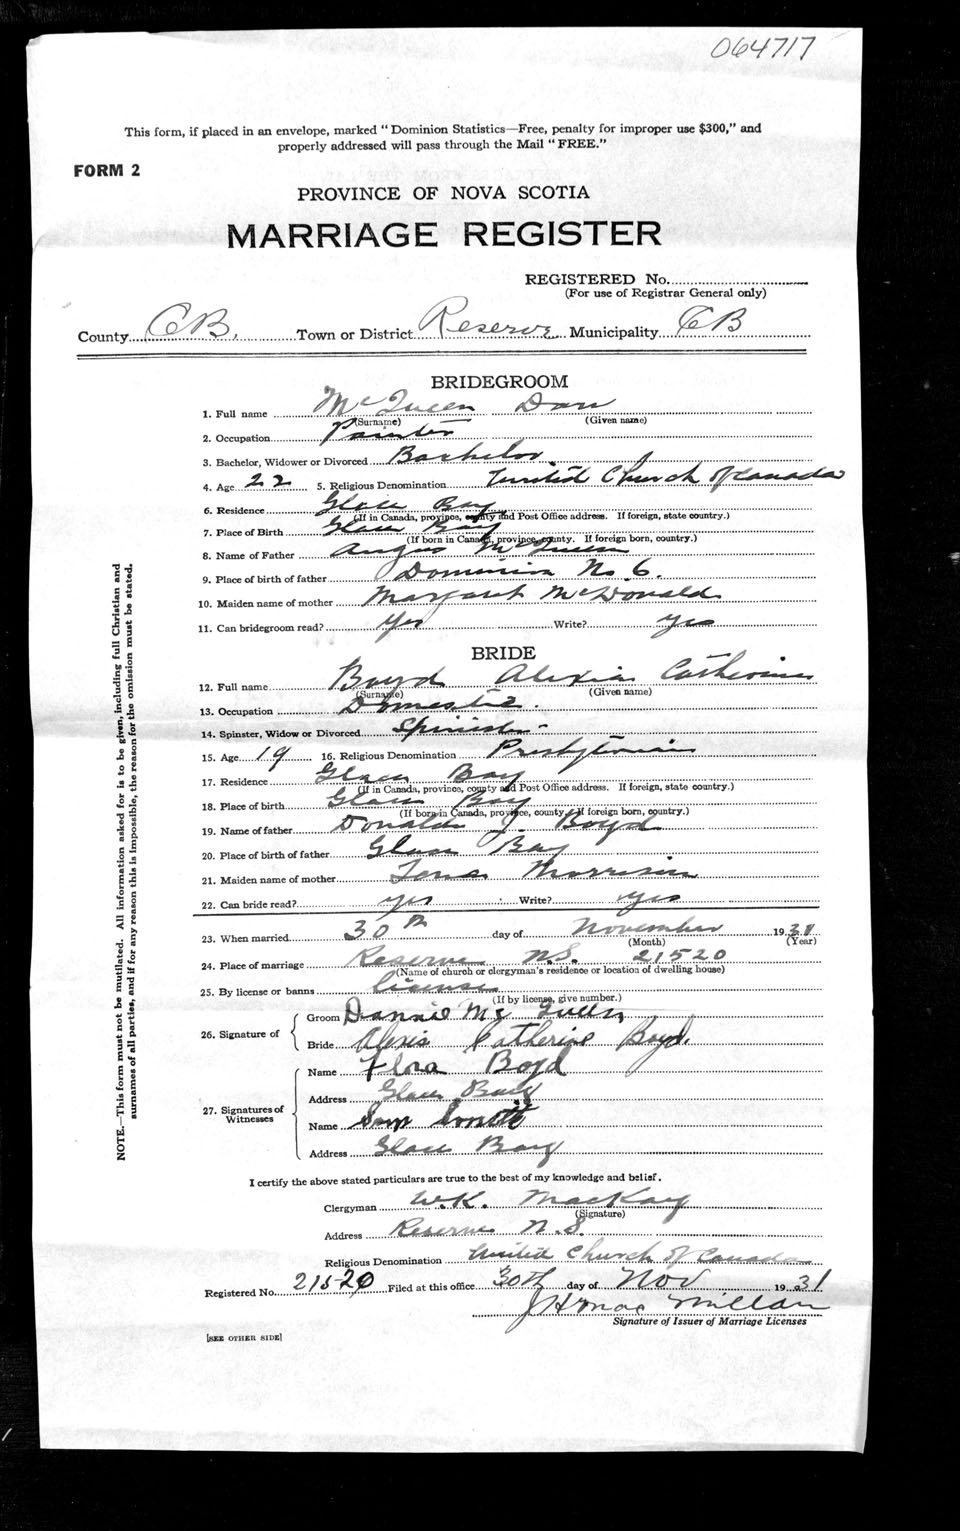 064717
This form, if placed in an envelope, marked "Dominion Statistics—Free, penalty for improper use $300," and
properly addressed will pass through the Mail "FREE."
FORM 2
PROVINCE OF NOVA SCOTIA
MARRIAGE REGISTER
REGISTERED No.
(For use of Registrar General only)
County CB. Town or District Reserve Municipality CB
BRIDEGROOM
1. Full name McQueen Dan
(Surname) (Given name)
2. Occupation Painter
3. Bachelor, Widower or Divorced Bachelor.
4. Age 22 5. Religious Denomination United Church of Canada
6. Residence Glace Bay
(If in Canada, province, county and Post Office address. If foreign, state country.)
7. Place of Birth Glace Bay
(If born in Canada, province, county. If foreign born, country.)
8. Name of Father Angus McQueen
9. Place of birth of father Dominion No. 6.
10. Maiden name of mother Margaret McDonald
11. Can bridegroom read? Yes Write? yes
BRIDE
12. Full name Boyd Alexia Catherine
(Surname) (Given name)
13. Occupation Domestic.
14. Spinster, Widow or Divorced Spinister
15. Age 19 16. Religious Denomination Presbyterian
17. Residence Glace Bay
(If in Canada, province, county and Post Office address. If foreign, state country.)
18. Place of birth Glace Bay
(If born in Canada, province, county. If foreign born, country.)
19. Name of father Donald J. Boyd
20. Place of birth of father Glace Bay
21. Maiden name of mother Tena Morrison
22. Can bride read? yes Write? yes
23. When married 30th day of November 1931
(Month) (Year)
24. Place of marriage Reserve N.S. 21520
(Name of church or clergyman's residence or location of dwelling house)
25. By license or banns license
(If by license, give number.)
26. Signature of
Groom Dannie Mc Queen
Bride Alexis Catherine Boyd.
27. Signatures of Witnesses
Name Flora Boyd
Address Glace Bay
Name Sam
Address Glace Bay
I certify the above stated particulars are true to the best of my knowledge and belief.
Clergyman W.K. MacKay
(Signature)
Address Reserve N.S.
Religious Denomination United Church of Canada
Registered No. 21520 Filed at this office 30th day of Nov 1931
J H MacMillan
Signature of Issuer of Marriage Licenses
[SEE OTHER SIDE]
NOTE.—This form must not be mutilated. All information asked for is to be given, including full Christian and
surnames of all parties, and if for any reason this is impossible, the reason for the omission must be stated.